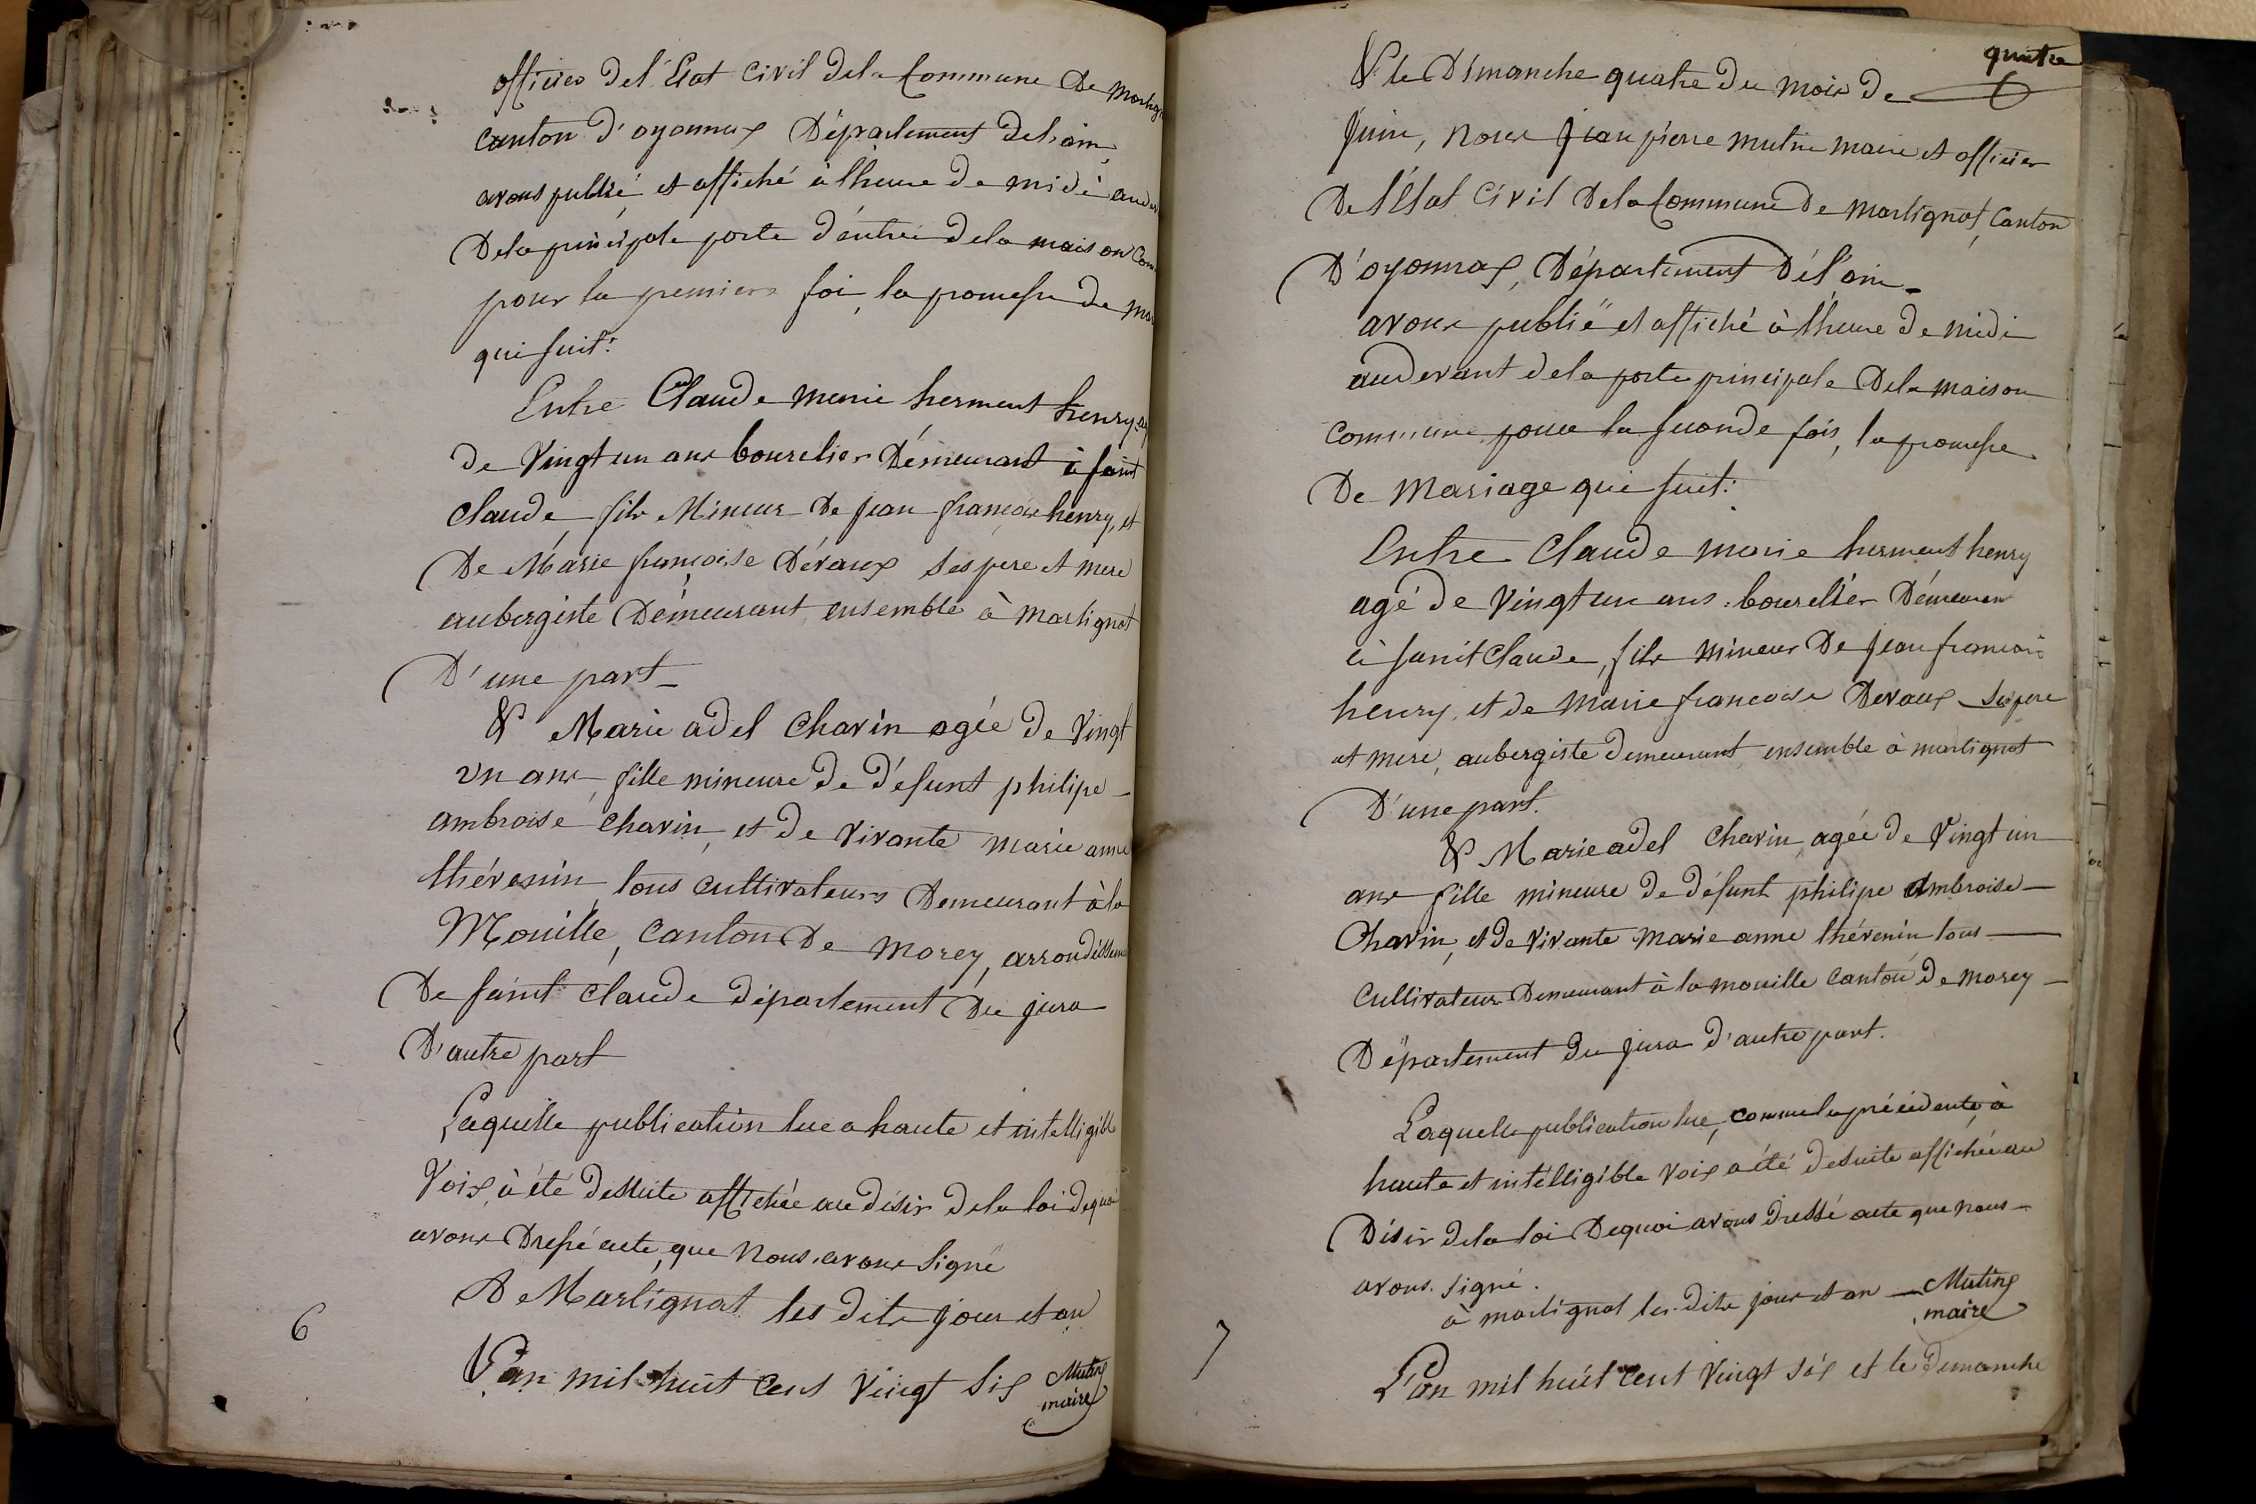 officier de l'Etat Civil de la Commune de
canton d'oyonnax Département de l'ain
avons publié et affiché à l'heure de midi
de la principale porte d'éntrée de la maison
pour la premiere foi, la promesse de
qui suit:
Entre Claude marie herment henry
de Vingt un ans bourelier Démeurant à saint
Claude, fils Mineur de jean françois henry, et
De Marie françoise Dévaux ses pere et mere
aubergiste Démeurant ensemble à Martignat
D'une part
& Marie adel Chavin agée de Vingt
un ans, fille mineure de défunt philipe
ambroise Chavin, et de vivante Marie anne
thévenin, tous cultivateurs Demeurant à la
Mouille, Canton de Morey, arrondissem
De saint Claude département Du jura
D'autre part
Laquelle publication lue a haute et intelligible
Voix, à été desuite affichée au désir de la loi dequoi
avons Dressé acte, que Nous avons Signé
A Martignat les dits jour et an
Mutin
maire
6
L'an mil huit cent vingt six
quatre
& le Dimanche quatre du mois de
juin, Nous jean pierre mutin maire et officier
De l'Etat Civil de la Commune de Martignat, Canton
D'oyonnax, Département de l'ain
avons publié et affiché à l'heure de midi
audevant de la porte principale de la maison
Commune pour la seconde fois, la promesse
De Mariage qui suit:
Entre Claude marie herment henry
agé de Vingt un ans bourelier Démeuran
à saint Claude, fils mineur De jean françois
henry, et de Marie françoise Devaux ses pere
et mere, aubergiste demeurant ensemble à martignat
D'une part.
& Marie adel Chavin, agée de Vingt un
ans fille mineure de défunt philipe ambroise
Chavin, et de vivante Marie anne thévenin tous
Cultivateurs Demeurant à la mouille Canton de Morey
Département du jura d'autre part.
Laquelle publication lue, comme la précédente, à
haute et intélligible Voix a été desuite affichée au
Désir de la loi Dequoi avons dressé acte que nous
avons signé.
à martignat les dits jour et an
Mutin
maire
7
L'an mil huit cent Vingt six et le dimanche